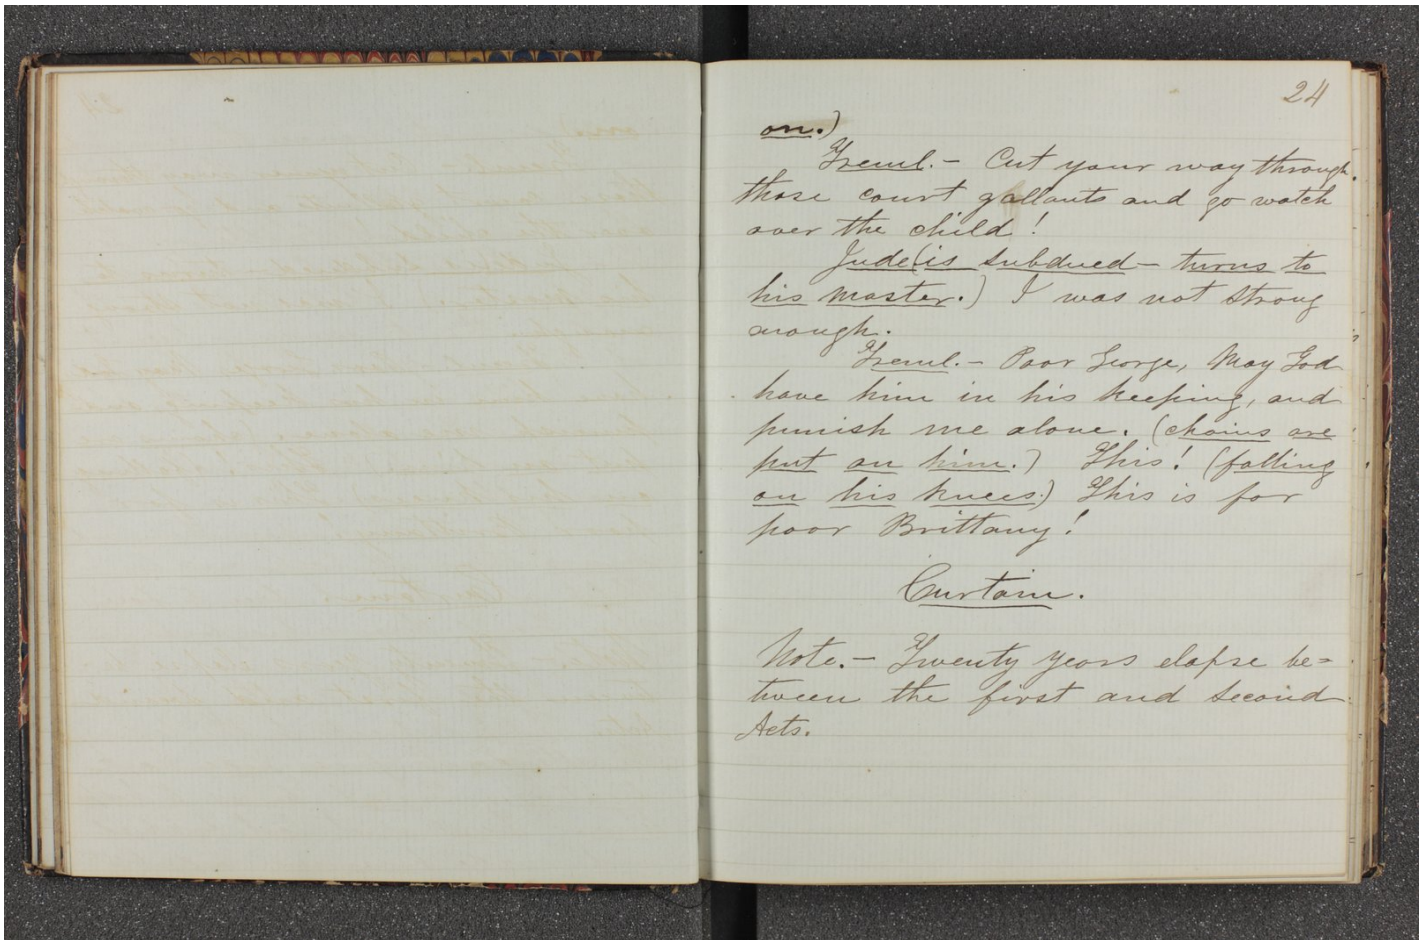 24
on.)
Treml. - Cut your way through
those court gallants and go watch
over the child!
Jude (is subdued - turns to
his master.) I was not strong
enough.
Treml. - Poor George, May God
have him in his keeping, and
punish me alone. (chains are
put on him.) This! (falling
on his knees.) This is for
poor Brittany!
Curtain.
Note. - Twenty years elapse be=
tween the first and second
Acts.